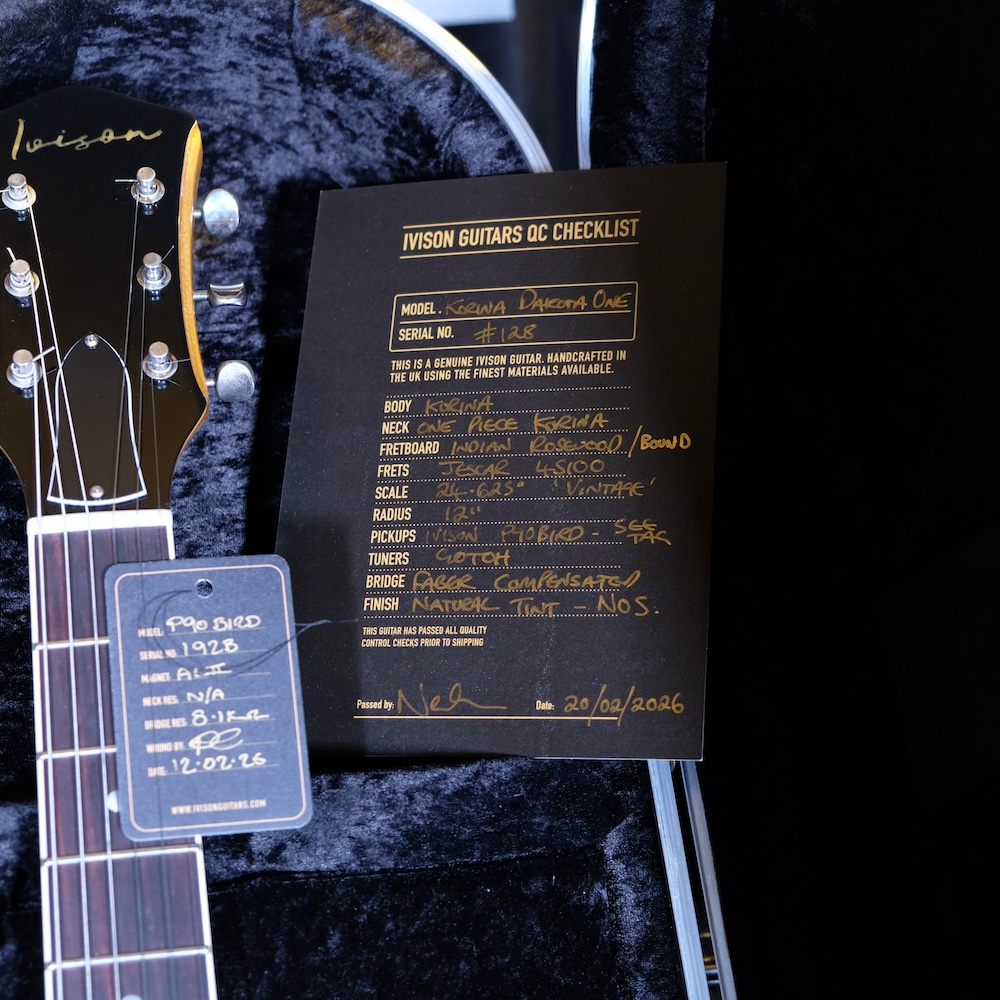 Ivison
IVISON GUITARS QC CHECKLIST
MODEL. KORINA DAKOTA ONE
SERIAL NO. #128
THIS IS A GENUINE IVISON GUITAR. HANDCRAFTED IN
THE UK USING THE FINEST MATERIALS AVAILABLE.
BODY KORINA
NECK ONE PIECE KORINA
FRETBOARD INDIAN ROSEWOOD /BOUND
FRETS JESCAR 45100
SCALE 24.625" 'VINTAGE'
RADIUS 12"
PICKUPS IVISON P90BIRD - SEE TAG
TUNERS GOTOH
BRIDGE FABER COMPENSATED
FINISH NATURAL TINT - NOS.
THIS GUITAR HAS PASSED ALL QUALITY
CONTROL CHECKS PRIOR TO SHIPPING
Passed by: Date: 20/02/2026
MODEL: P90 BIRD
SERIAL NO. 1928
MAGNET: ALII
NECK RES: N/A
BRIDGE RES: 8.1KΩ
WOUND BY:
DATE: 12.02.26
WWW.IVISONGUITARS.COM